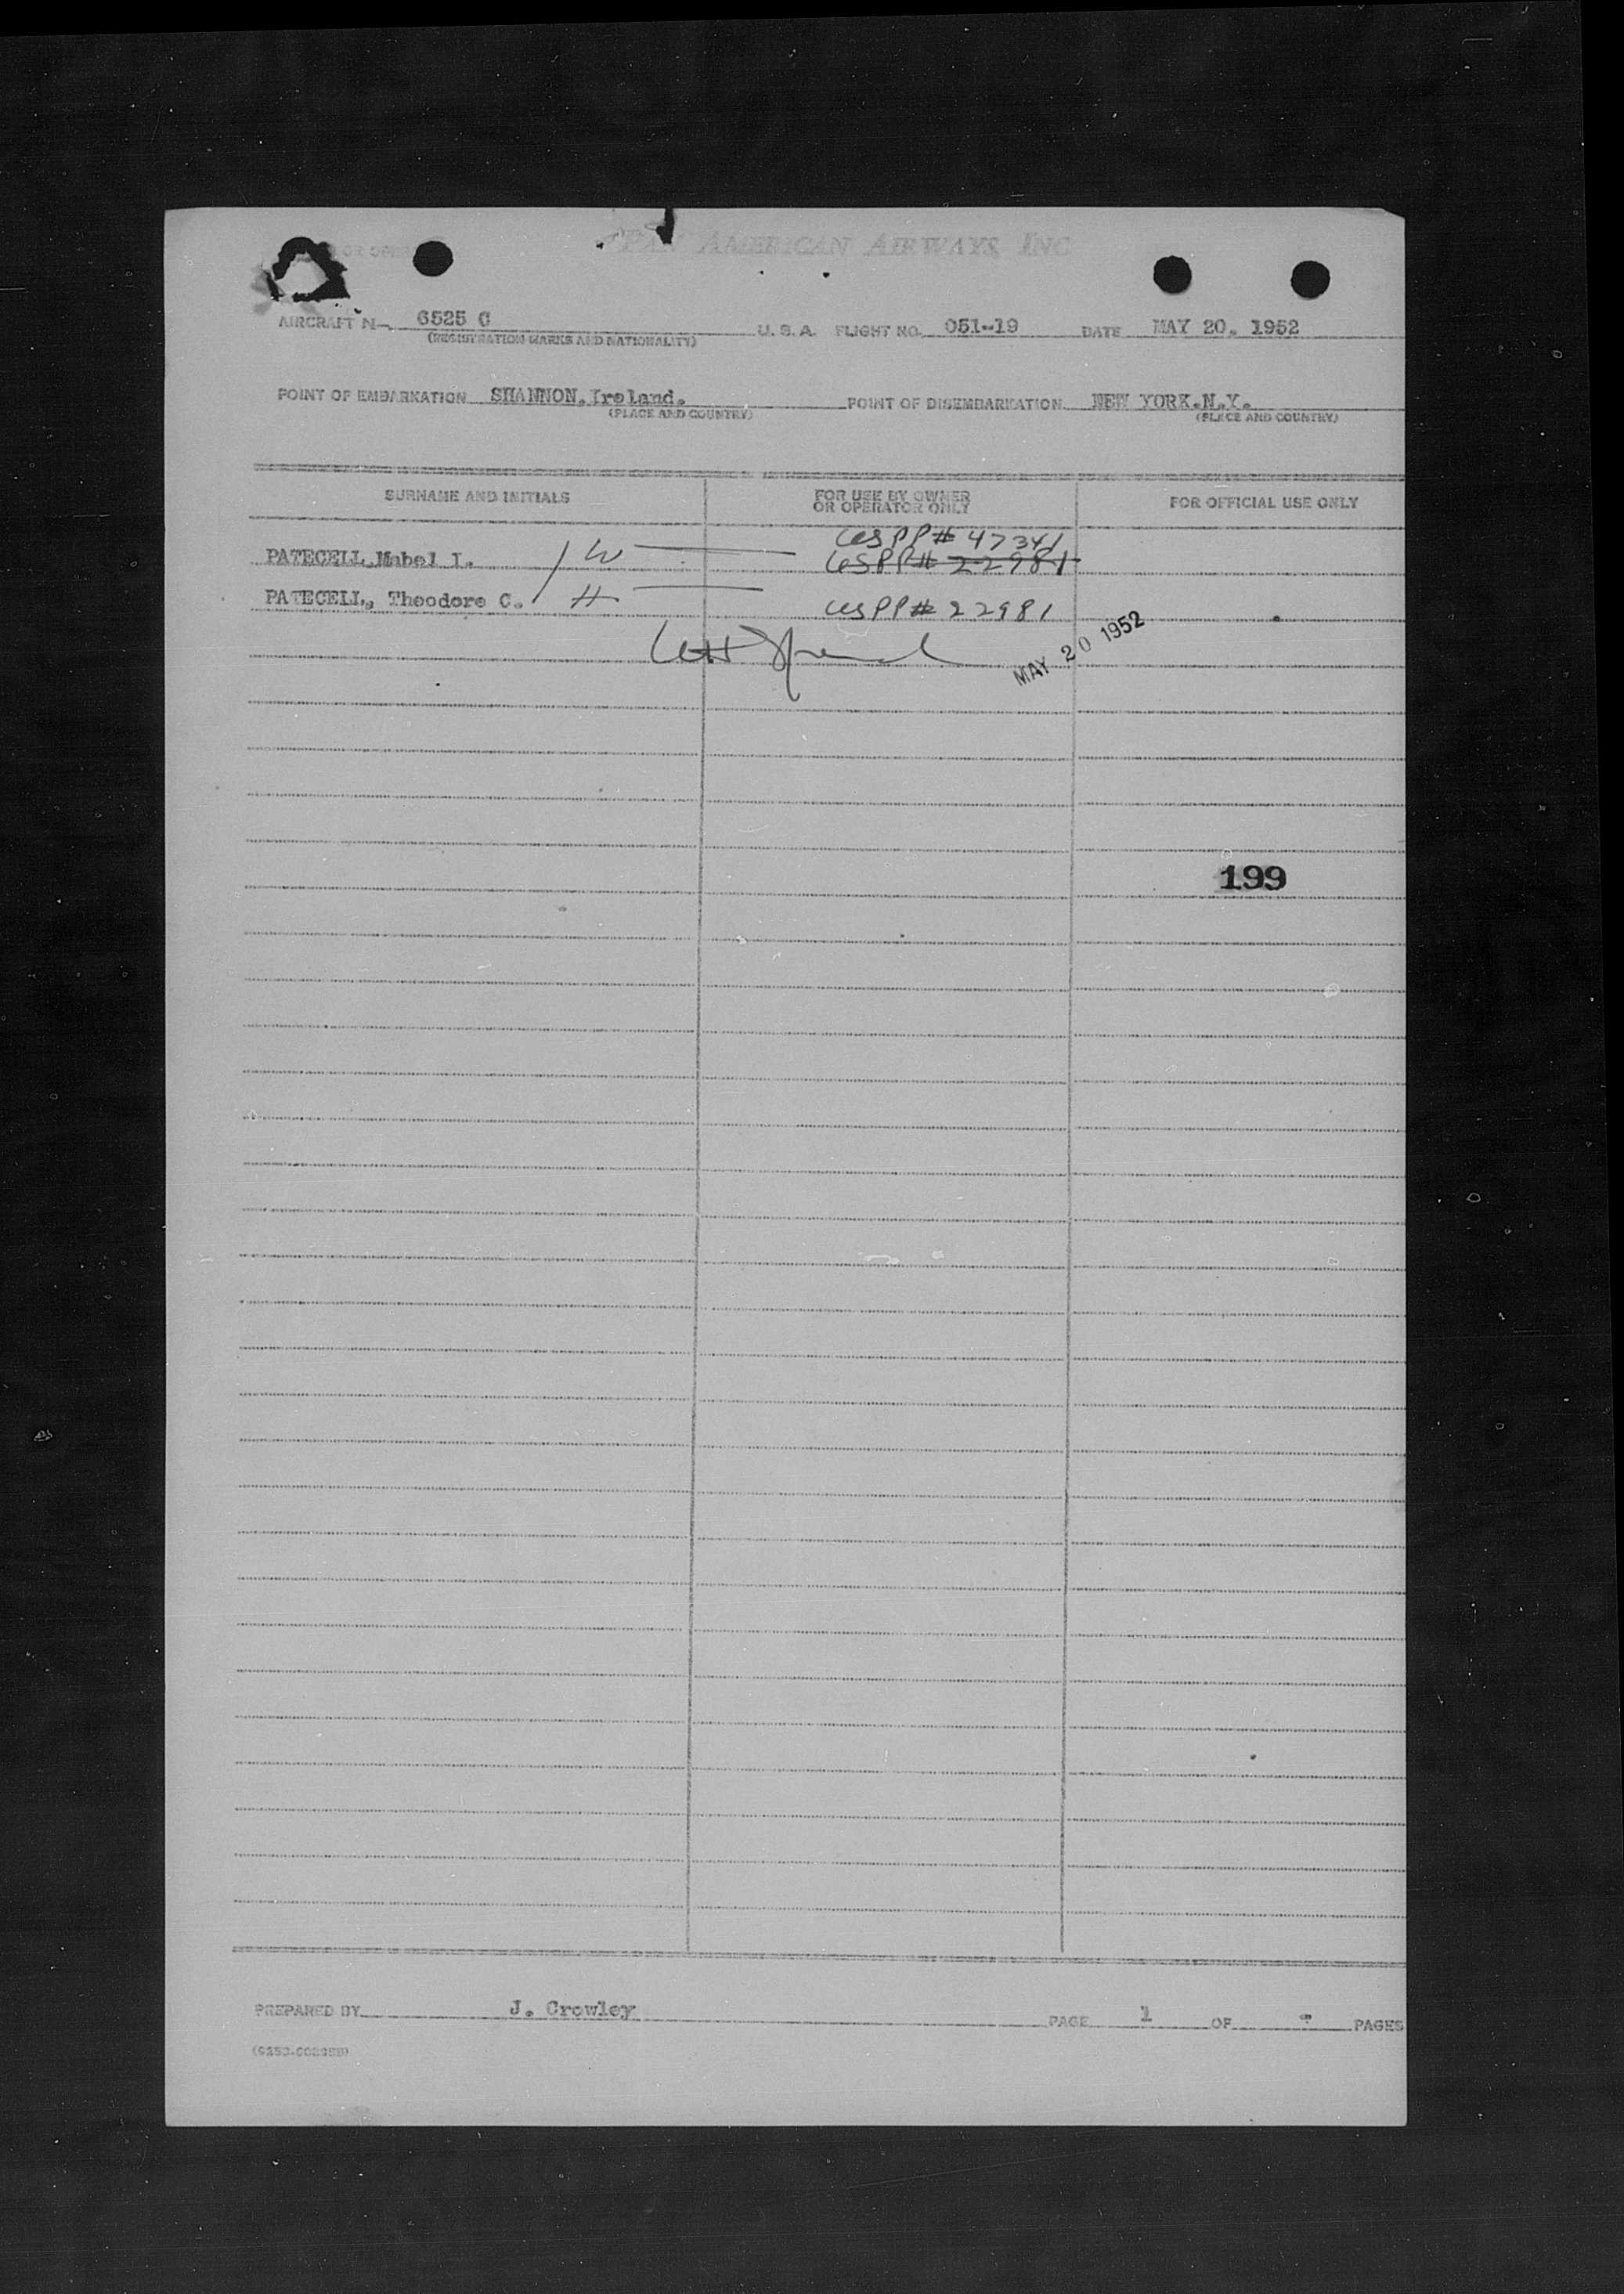 OR OPE
PAN AMERICAN AIRWAYS INC
AIRCRAFT N— 6525 C U. S. A. FLIGHT NO. 051-19 DATE MAY 20. 1952
(REGISTRATION MARKS AND NATIONALITY)
POINT OF EMBARKATION SHANNON.Ireland. POINT OF DISEMBARKATION NEW YORK.N.Y.
(PLACE AND COUNTRY) (PLACE AND COUNTRY)
SURNAME AND INITIALS FOR USE BY OWNER OR OPERATOR ONLY FOR OFFICIAL USE ONLY
US PP# 47341
PATECELL,Mabel I. / W US PP# 22981
PATECELL, Theodore C. H US PP# 22981
MAY 20 1952
199
PREPARED BY J. Crowley PAGE 1 OF - PAGES